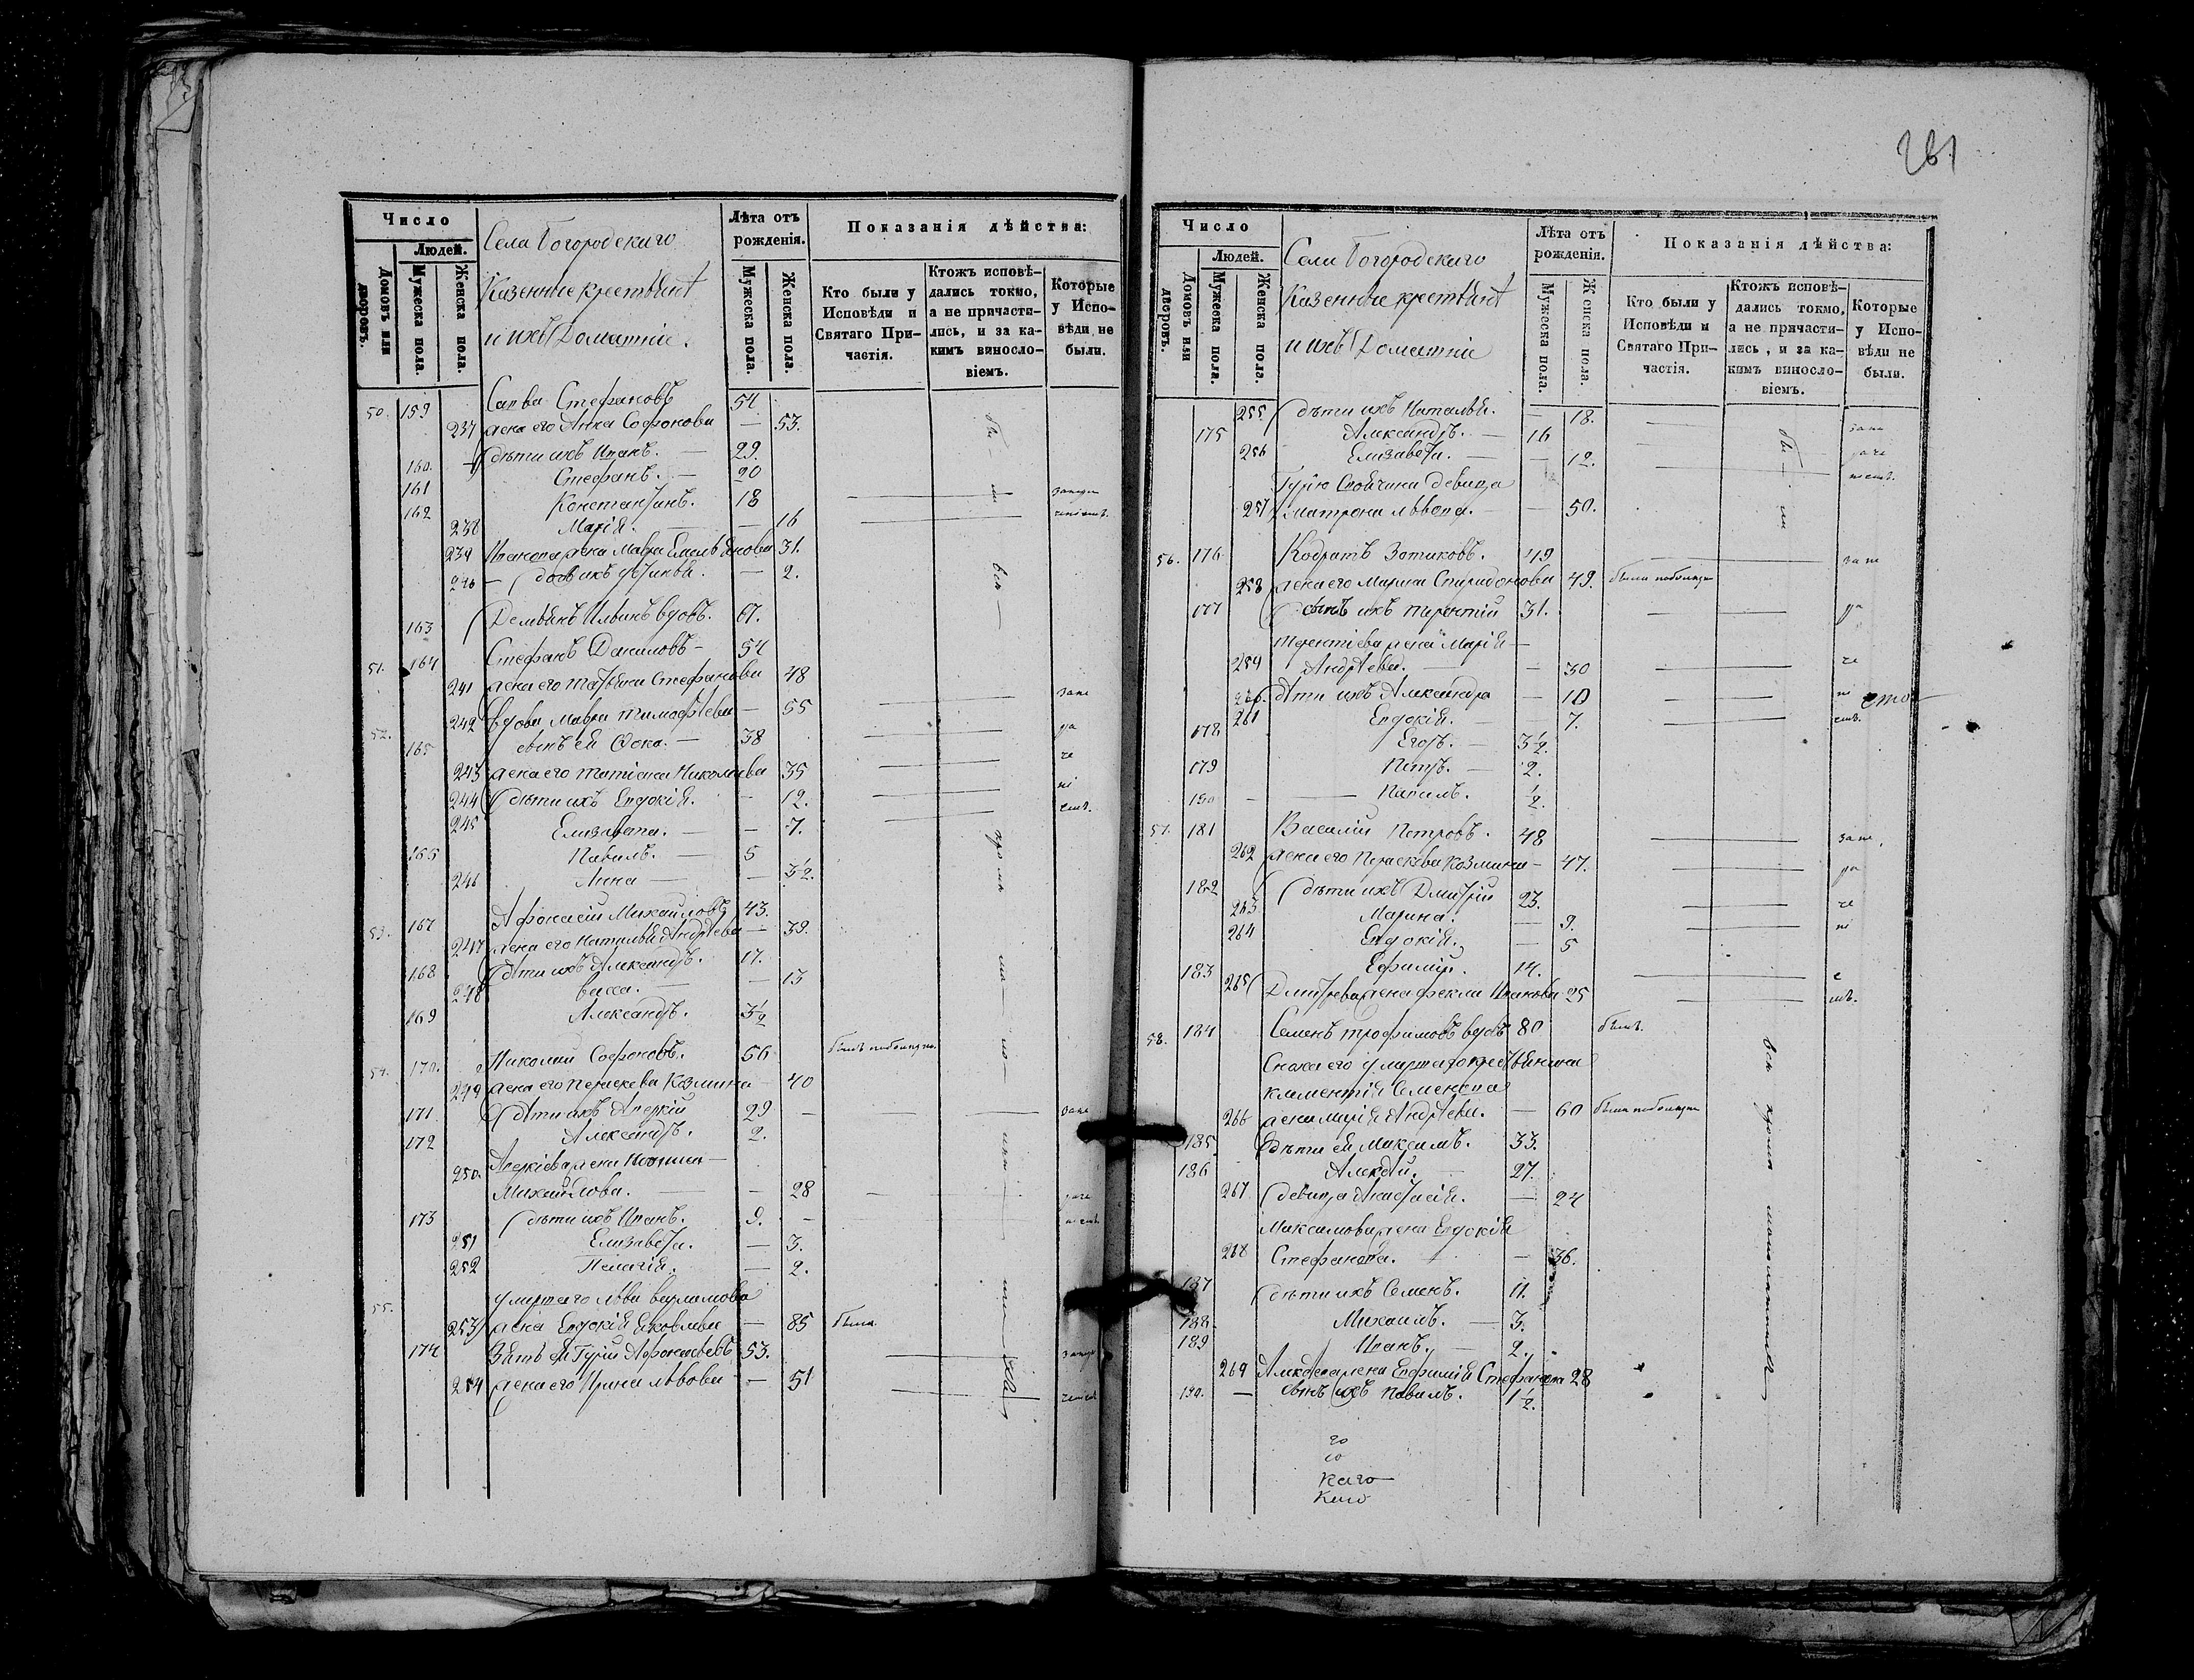 261
Число
Людей.
Домовъ или дворовъ.
Мужеска пола.
Женска пола.
Села Богородскаго
Казенные крестьяне
и ихъ Домашніе.
Лѣта отъ рожденія.
Мужеска пола.
Женска пола.
Показанія дѣйства:
Кто были у Исповѣди и Святаго Причастія.
Ктожъ исповѣдались токмо, а не причастились, и за какимъ винословіемъ.
Которые у Исповѣди не были.
50. 159 Савва Стефановъ 54
237 жена его Анна Софонова — 53.
160. дѣти ихъ Иванъ. — 29.
161 Стефанъ. — 20
162 Константинъ. 18
238 Марія. — 16
239 Иванова жена Мавра Емельянова 31.
240 — дочь ихъ — 2.
163 Демьянъ Ильинъ вдовъ. 67.
51. 164 Стефанъ Даниловъ — 54
241 жена его Татьяна Стефанова 48
52. 242 вдова Мавра Тимофѣева — 55
165 сынъ ея Фока. — 38
243 жена его Татіана Николаева 35
244 дѣти ихъ Евдокія. — 12.
245 Елизавета. — — 7.
166 Павелъ. — 5
246 Анна — — 3½.
53. 167 Афонасій Михайловъ 43.
247 жена его Наталья Андреева — 39.
168 дѣти ихъ Александръ. 17.
248 Васса. — — 13
169 Александръ. 3½
54. 170. Николай Софоновъ. 56 былъ
249 жена его Параскева Козмина 40
171 дѣти ихъ Аверкій 29 —
172 Александръ. 2.
250. Аверкіева жена
Михайлова. — — 28
173 дѣти ихъ Иванъ. 9. —
251 Елизавета. — 3.
252 Пелагія. — 2.
55. умершаго Льва Варламова
253 жена Евдокія Яковлева — 85 была
174 Зять ея Гурій Афонасьевъ 53.
254 жена его Ирина Львова — 51
Число
Людей.
Домовъ или дворовъ.
Мужеска пола.
Женска пола.
Села Богородскаго
Казенные крестьяне
и ихъ Домашніе
Лѣта отъ рожденія.
Мужеска пола.
Женска пола.
Показанія дѣйства:
Кто были у Исповѣди и Святаго Причастія.
Ктожъ исповѣдались токмо, а не причастились, и за какимъ винословіемъ.
Которые у Исповѣди не были.
255 дѣти ихъ Наталья. — 18.
175 Александръ. — 16
256 Елизавета. — — 12.
Гурію Своячина девица
257 Матрона Львова. — 50.
56. 176 Кодратъ Зотиковъ. 49
258 жена его Марина Спиридонова 49.
177 сынъ ихъ Терентій 31.
Терентіева жена Марія —
259 Андреева. — — 30
260. дѣти ихъ Александра — 10
261 Евдокія. — — 7.
178 Егоръ. — 3½.
179 Петръ. — 2.
180 — Павелъ. ½.
57. 181 Василій Петровъ. 48
262 жена его Параскева Козмина — 47.
182 дѣти ихъ Дмитрій 23.
263 Марина. — 9.
264 Евдокія. — 5
183 Ефимій. 14.
265 Дмитріева жена Фекла Иванова 25
58. 184 Семенъ Трофимовъ вдовъ 80 былъ.
Сноха его умершаго крестьянина
Климентія Семенова
266 жена Марія Андреева. — 60
185 дѣти ея Максимъ. 33.
186 Алексѣй. — 27.
267 девица Анастасія. — 24
Максимова жена Евдокія
268 Стефанова. — — 36.
187 дѣти ихъ Семенъ. 11.
188 Михаилъ. — 3.
189 Иванъ. — 2.
269 Алексѣева жена Евфимія Стефанова 28
190. — сынъ ихъ Павелъ. 1½.
го
го
каго
каго